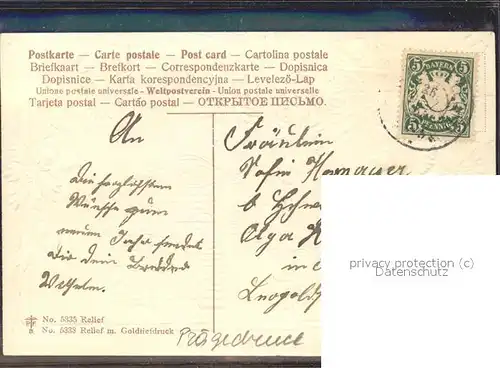 Postkarte — Carte postale — Post card — Cartolina postale
Briefkaart — Brefkort — Correspondenzkarte — Dopisnica
Dopisnice — Karta korespondencyjna — Levelező-Lap
Unione postale universale — Weltpostverein — Union postale universelle
Tarjeta postal — Cartão postal — ОТКРЫТОЕ ПИСЬМО.
BAYERN
5 5
PFENNIG
5 5
An
Fräulein
Sofie
b
Olga
in
Die herzlichsten
Wünsche zum
neuen Jahr sendet
Dir Dein Bruder
Wilhelm.
privacy protection (c)
Datenschutz
No. 5335 Relief
No. 5333 Relief m. Goldtiefdruck
Prägedruck